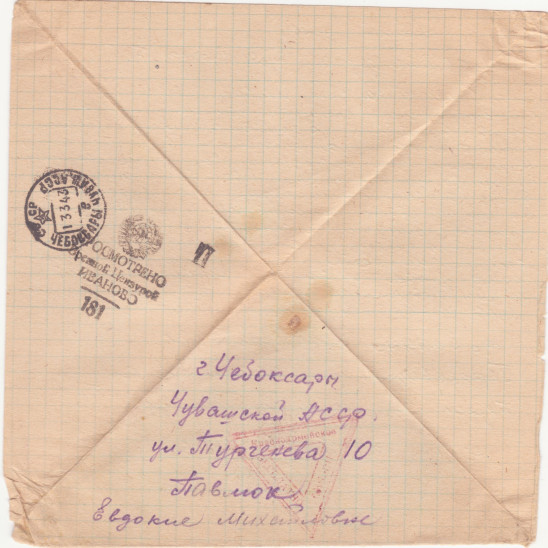 СССР ЧЕБОКСАРЫ ЧУВАШ. АССР
13 3 43
ПРОСМОТРЕНО
Военной Цензурой
ИВАНОВО
181
г Чебоксары
Чувашской АССР.
ул. Тургенева 10
Павлюк
Евдокие Михайловне